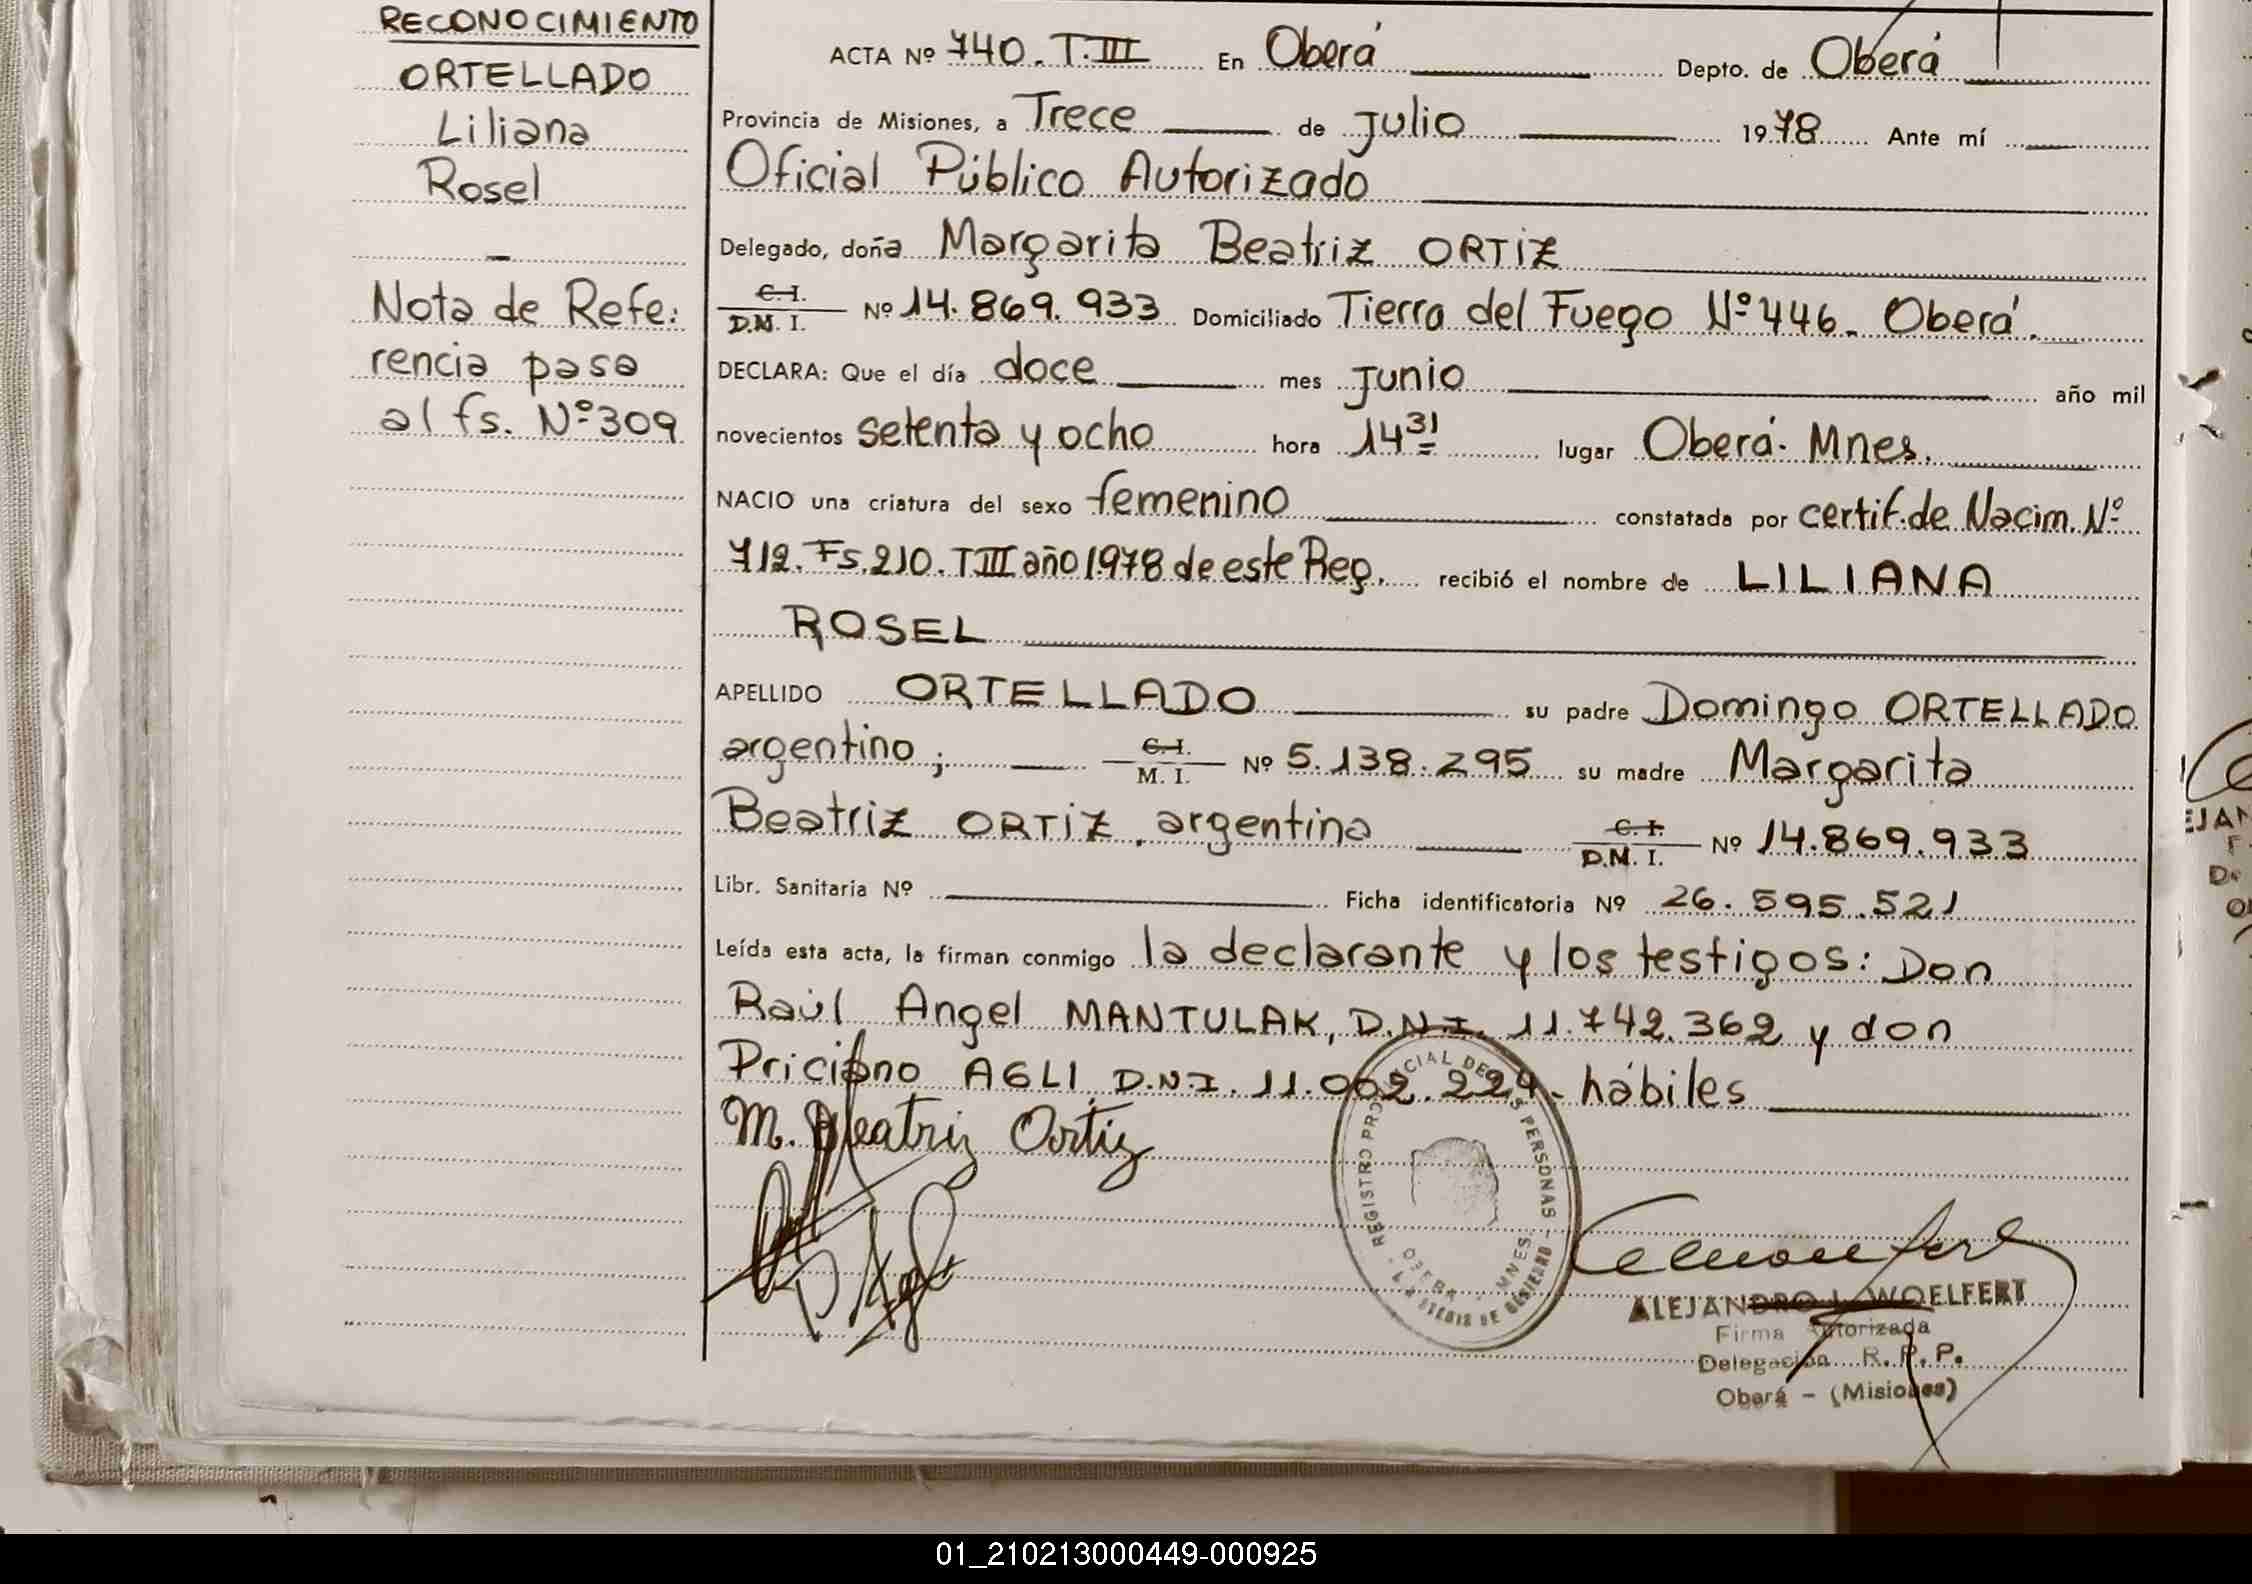 RECONOCIMIENTO
ORTELLADO
Liliana
Rosel
Nota de Refe:
rencia pasa
al fs. Nº 309
ACTA Nº 740. T. III En Oberá Depto. de Oberá
Provincia de Misiones, a Trece de julio 1978 Ante mí
Oficial Público Autorizado
Delegado, doña Margarita Beatriz ORTIZ
C. I. / D.M. I. Nº 14.869.933 Domiciliado Tierra del Fuego Nº 446. Oberá.
DECLARA: Que el día doce mes junio año mil
novecientos setenta y ocho hora 14 31 lugar Oberá. Mnes.
NACIO una criatura del sexo femenino constatada por certif. de Nacim. Nº
712. Fs. 210. T III año 1978 de este Reg. recibió el nombre de LILIANA
ROSEL
APELLIDO ORTELLADO su padre Domingo ORTELLADO
argentino; C. I. / M. I. Nº 5.138.295 su madre Margarita
Beatriz ORTIZ, argentina C. I. / D.M. I. Nº 14.869.933
Libr. Sanitaria Nº Ficha identificatoria Nº 26.595.521
Leída esta acta, la firman conmigo la declarante y los testigos: Don
Raúl Angel MANTULAK, D.N.I. 11.742.362 y don
Priciano AGLI D.N.I. 11.002.224. hábiles
M. Beatriz Ortiz
REGISTRO PROVINCIAL DE LAS PERSONAS
OBERA - MNES.
ALEJANDRO L. WOELFERT
Firma Autorizada
Delegación R. P. P.
Oberá - (Misiones)
EJAN
01_210213000449-000925